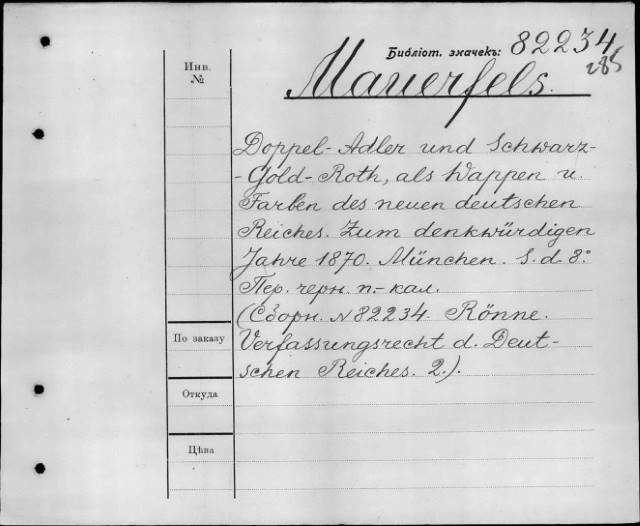 Библіот. значекъ: 82234
285
Инв.
№
Mauerfels.
Doppel-Adler und Schwarz-
-Gold-Roth, als Wappen u.
Farben des neuen deutschen
Reiches. Zum denkwürdigen
Jahre 1870. München. S. d. 8.°
Пер. черн. п.-кал.
(Сборн. № 82234. Rönne.
По заказу
Verfassungsrecht d. Deut-
schen Reiches. 2.).
Откуда
Цѣна